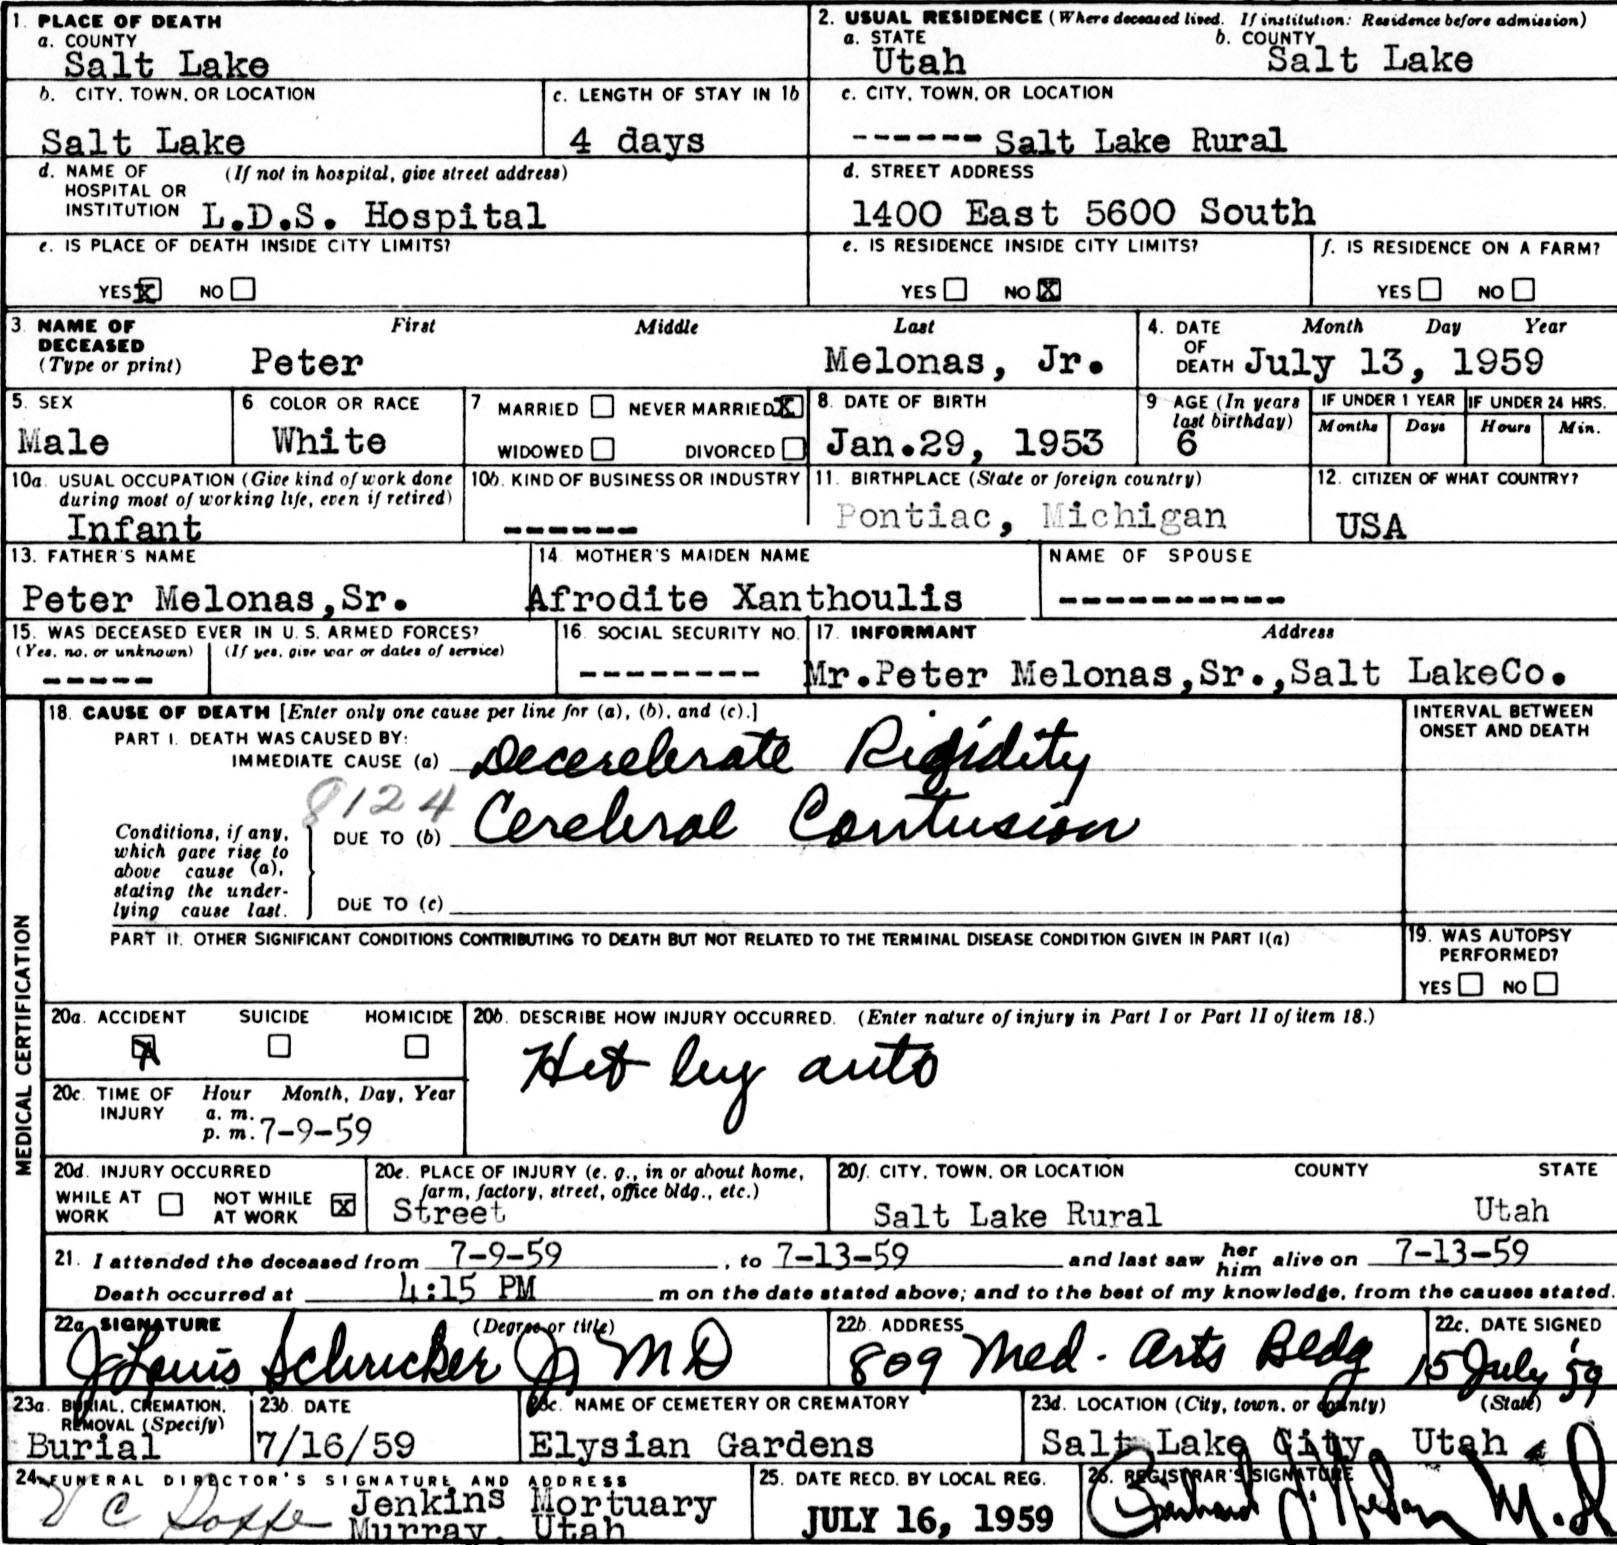 1. PLACE OF DEATH
a. COUNTY
Salt Lake
2. USUAL RESIDENCE (Where deceased lived. If institution: Residence before admission)
a. STATE b. COUNTY
Utah Salt Lake
b. CITY, TOWN, OR LOCATION
Salt Lake
c. LENGTH OF STAY IN 1b
4 days
c. CITY, TOWN, OR LOCATION
------ Salt Lake Rural
d. NAME OF HOSPITAL OR INSTITUTION (If not in hospital, give street address)
L.D.S. Hospital
d. STREET ADDRESS
1400 East 5600 South
e. IS PLACE OF DEATH INSIDE CITY LIMITS?
YES X NO
e. IS RESIDENCE INSIDE CITY LIMITS?
YES NO X
f. IS RESIDENCE ON A FARM?
YES NO
3. NAME OF DECEASED (Type or print)
First Middle Last
Peter Melonas, Jr.
4. DATE OF DEATH Month Day Year
July 13, 1959
5. SEX
Male
6 COLOR OR RACE
White
7 MARRIED NEVER MARRIED X
WIDOWED DIVORCED
8. DATE OF BIRTH
Jan.29, 1953
9 AGE (In years last birthday)
6
IF UNDER 1 YEAR IF UNDER 24 HRS.
Months Days Hours Min.
10a. USUAL OCCUPATION (Give kind of work done during most of working life, even if retired)
Infant
10b. KIND OF BUSINESS OR INDUSTRY
------
11. BIRTHPLACE (State or foreign country)
Pontiac, Michigan
12. CITIZEN OF WHAT COUNTRY?
USA
13. FATHER'S NAME
Peter Melonas,Sr.
14. MOTHER'S MAIDEN NAME
Afrodite Xanthoulis
NAME OF SPOUSE
----------
15. WAS DECEASED EVER IN U. S. ARMED FORCES?
(Yes, no, or unknown) (If yes, give war or dates of service)
-----
16. SOCIAL SECURITY NO.
--------
17. INFORMANT Address
Mr.Peter Melonas,Sr.,Salt LakeCo.
MEDICAL CERTIFICATION
18. CAUSE OF DEATH [Enter only one cause per line for (a), (b), and (c).]
INTERVAL BETWEEN ONSET AND DEATH
PART I. DEATH WAS CAUSED BY:
IMMEDIATE CAUSE (a) Decerebrate Rigidity
8124
Conditions, if any, which gave rise to above cause (a), stating the underlying cause last.
DUE TO (b) Cerebral Contusion
DUE TO (c)
PART II. OTHER SIGNIFICANT CONDITIONS CONTRIBUTING TO DEATH BUT NOT RELATED TO THE TERMINAL DISEASE CONDITION GIVEN IN PART I(a)
19. WAS AUTOPSY PERFORMED?
YES NO
20a. ACCIDENT SUICIDE HOMICIDE
X
20b. DESCRIBE HOW INJURY OCCURRED. (Enter nature of injury in Part I or Part II of item 18.)
Hit by auto
20c. TIME OF INJURY Hour Month, Day, Year
a. m.
p. m. 7-9-59
20d. INJURY OCCURRED
WHILE AT WORK NOT WHILE AT WORK X
20e. PLACE OF INJURY (e. g., in or about home, farm, factory, street, office bldg., etc.)
Street
20f. CITY, TOWN, OR LOCATION COUNTY STATE
Salt Lake Rural Utah
21. I attended the deceased from 7-9-59, to 7-13-59 and last saw her him alive on 7-13-59
Death occurred at 4:15 PM m on the date stated above; and to the best of my knowledge, from the causes stated.
22a. SIGNATURE (Degree or title)
J Louis Schricker Jr MD
22b. ADDRESS
809 Med. Arts Bldg
22c. DATE SIGNED
15 July '59
23a. BURIAL, CREMATION, REMOVAL (Specify)
Burial
23b. DATE
7/16/59
23c. NAME OF CEMETERY OR CREMATORY
Elysian Gardens
23d. LOCATION (City, town, or county) (State)
Salt Lake City Utah
24. FUNERAL DIRECTOR'S SIGNATURE AND ADDRESS
Jenkins Mortuary
Murray, Utah
25. DATE RECD. BY LOCAL REG.
JULY 16, 1959
26. REGISTRAR'S SIGNATURE
M.D.